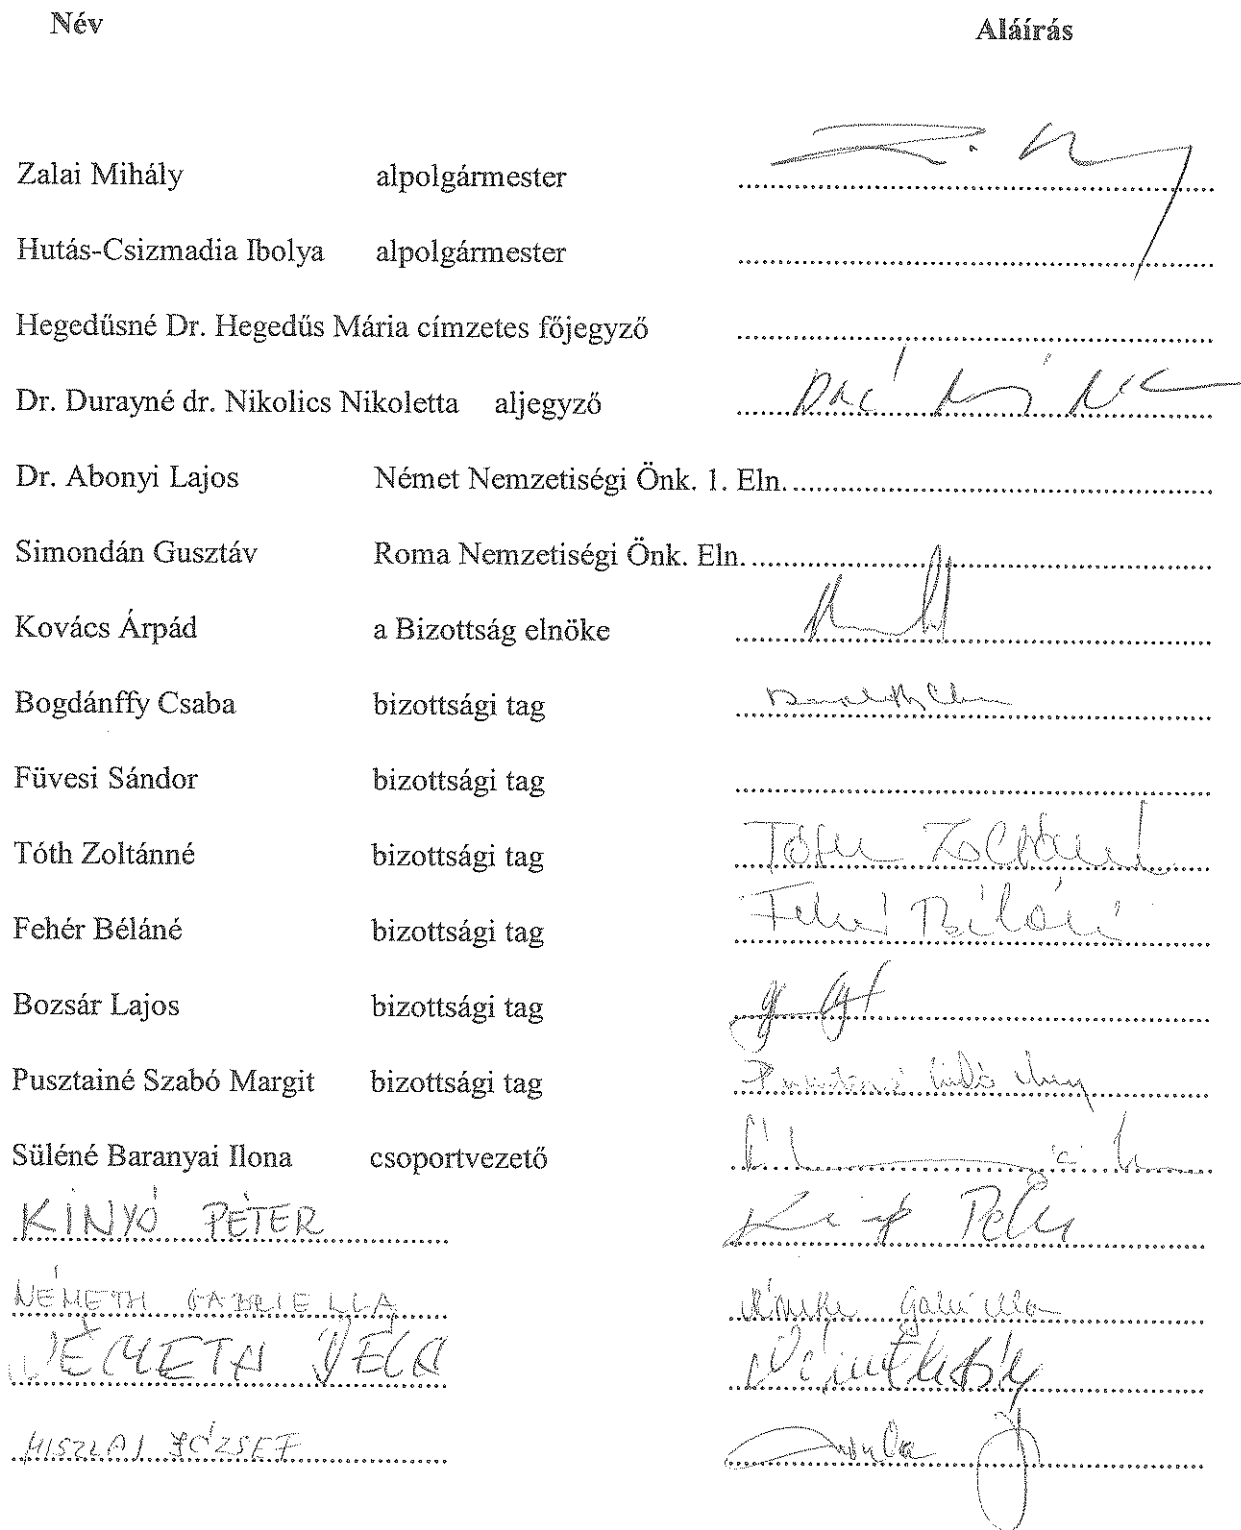 Név Aláírás
Zalai Mihály alpolgármester
Hutás-Csizmadia Ibolya alpolgármester
Hegedűsné Dr. Hegedűs Mária címzetes főjegyző
Dr. Durayné dr. Nikolics Nikoletta aljegyző
Dr. Abonyi Lajos Német Nemzetiségi Önk. 1. Eln.
Simondán Gusztáv Roma Nemzetiségi Önk. Eln.
Kovács Árpád a Bizottság elnöke
Bogdánffy Csaba bizottsági tag
Füvesi Sándor bizottsági tag
Tóth Zoltánné bizottsági tag Tóth Zoltánné
Fehér Béláné bizottsági tag Fehér Béláné
Bozsár Lajos bizottsági tag
Pusztainé Szabó Margit bizottsági tag
Süléné Baranyai Ilona csoportvezető
KINYÓ PÉTER Péter
NÉMETH GABRIELLA Németh Gabriella
NÉMETH BÉLA
MISZLAI JÓZSEF